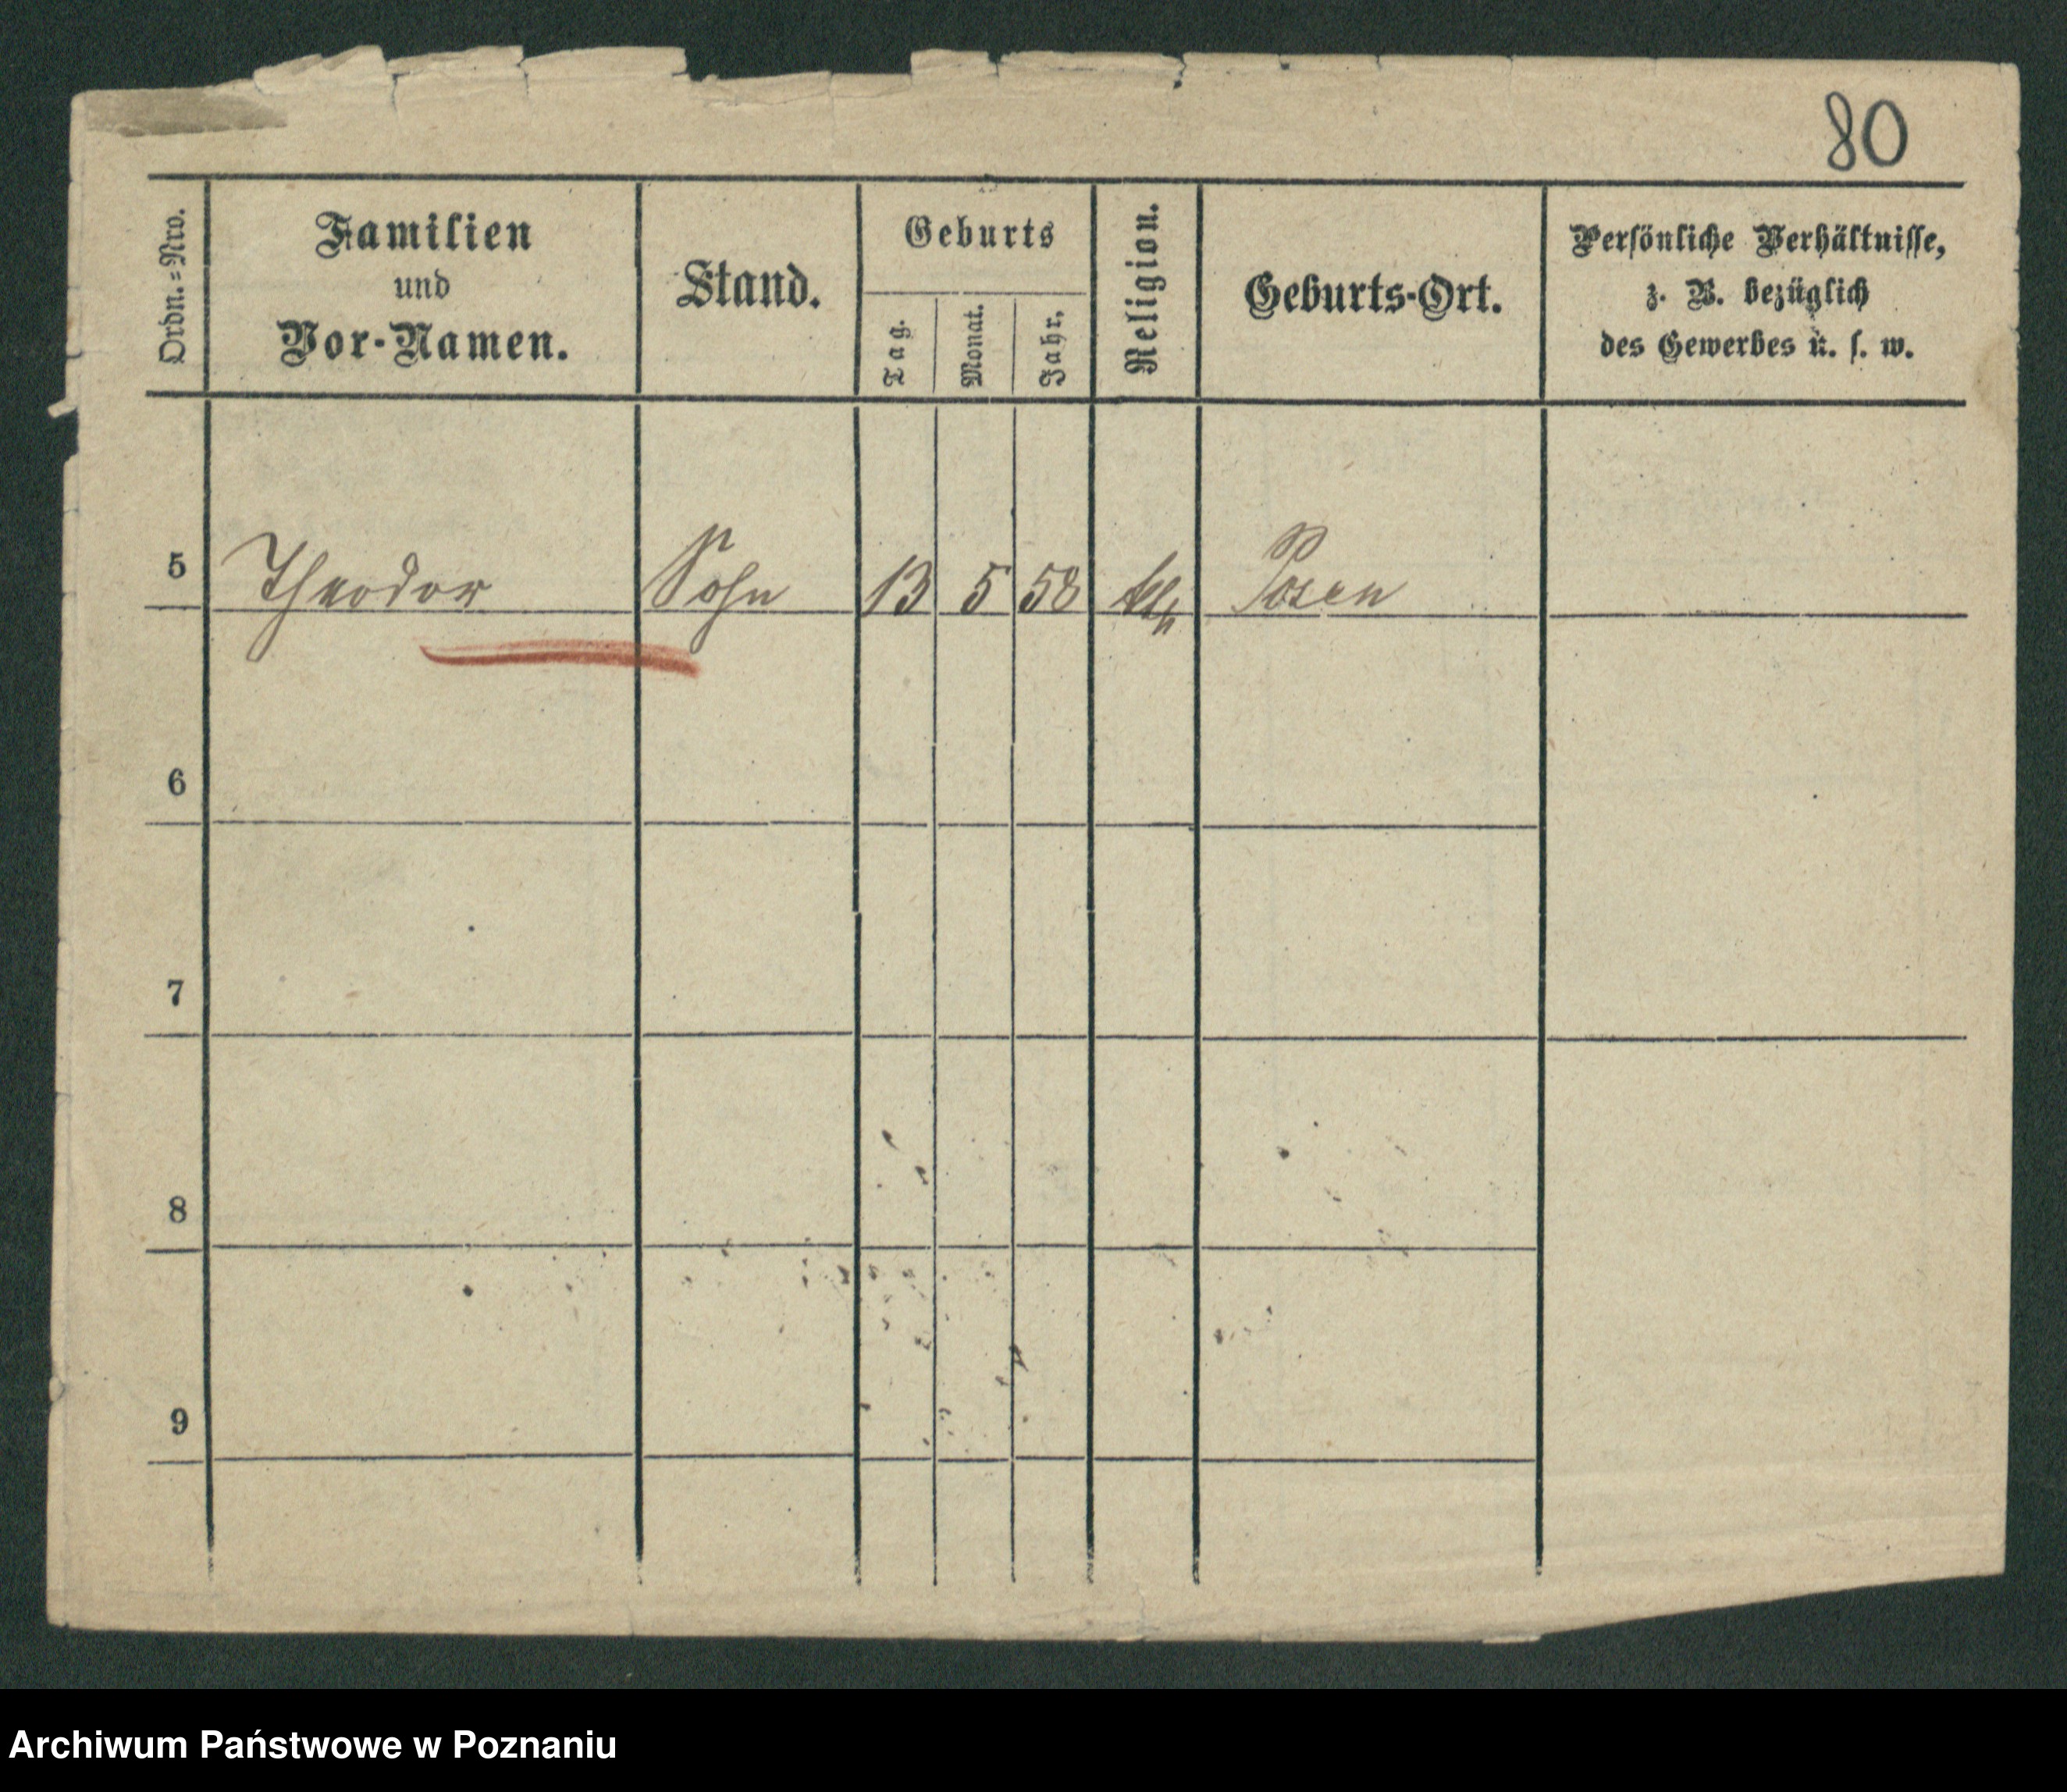 80
Ordn.=Nro.
Familien
und
Vor-Namen.
Stand.
Geburts
Tag.
Monat.
Jahr.
Religion.
Geburts-Ort.
Persönliche Verhältnisse,
z. B. bezüglich
des Gewerbes u. s. w.
5 Theodor Sohn 13 5 58 Posen
6
7
8
9
Archiwum Państwowe w Poznaniu